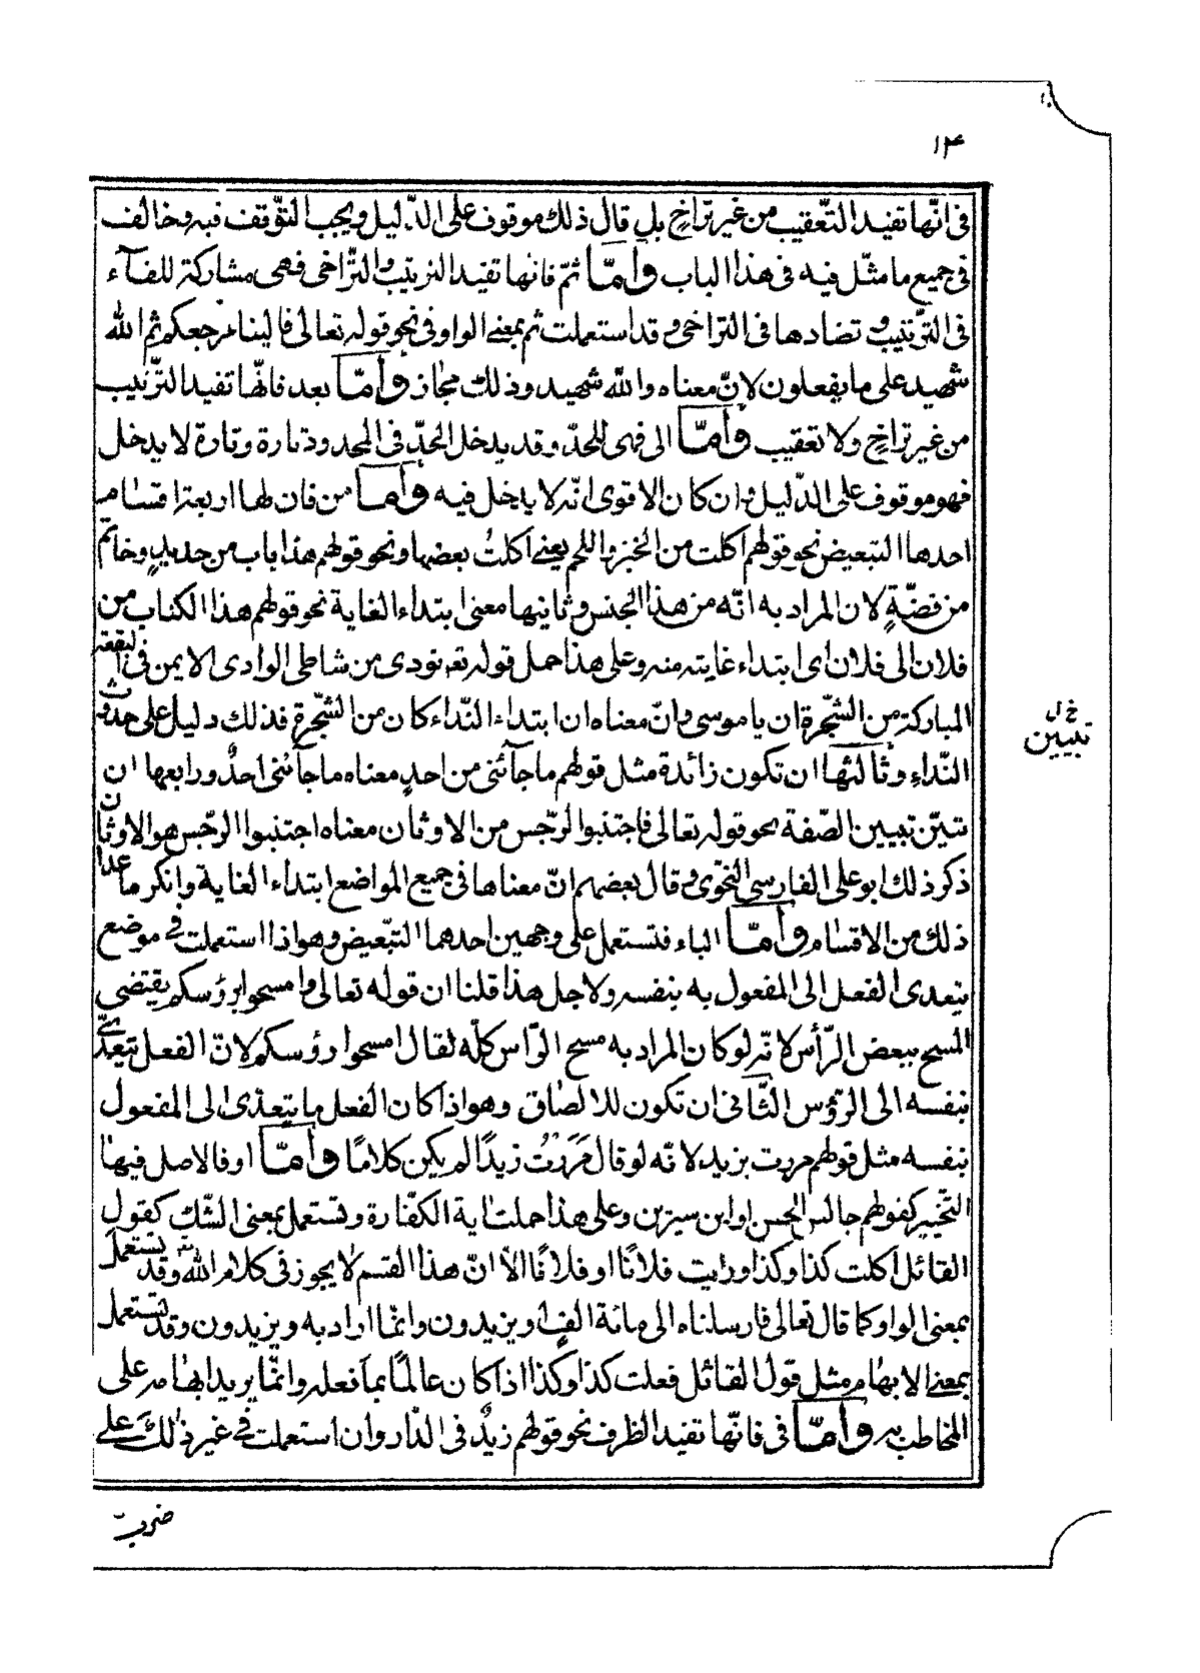 ١٤
فى انّها تفيد التّعقيب من غير تراخٍ بل قال ذلك موقوف على الدّليل ويجب التوّقف فيه وخالف
فى جميع ما مثّل فيه فى هذا الباب وأمّا ثمّ فانها تفيد الترتيب والتّراخى فهى مشاركة للفآء
فى التّرتيب وتضادها فى التراخى وقد استعملت ثم بمعنى الواو فى نحو قوله تعالى فالينا مرجعكم ثم الله
شهيد على ما يفعلون لانّ معناه والله شهيد وذلك مجاز وأمّا بعد فانّها تفيد التّرتيب
من غير تراخٍ ولا تعقيب وأمّا الى فهى للحدّ وقد يدخل الحدّ فى المحدود تارة وتارة لا يدخل
فهو موقوف على الدّليل وان كان الاقوى انّه لا يدخل فيه وأمّا من فان لها اربعة اقسام
احدها التبعيض نحو قولهم اكلت من الخبز واللحم يعنى اكلتُ بعضها ونحو قولهم هذا باب من حديدٍ وخاتم
من فضّةٍ لان المراد به انّه من هذا الجنس وثانيها معنى ابتداء الغاية نحو قولهم هذا الكتاب من
فلان الى فلان اى ابتداء غايته منه وعلى هذا حمل قوله تعه نودى من شاطئ الوادى الايمن فى البقعة
المباركة من الشّجرة ان يا موسى وانّ معناه ان ابتداء النّداء كان من الشّجرة فذلك دليل على حدوث
النّداءِ وثالثها ان تكون زائدة مثل قولهم ما جآئنى من احدٍ معناه ما جآئنى احدٌ ورابعها ان
تتبيّن تبيين الصّفة نحو قوله تعالى فاجتنبوا الرّجس من الاوثان معناه اجتنبوا الرّجس هو الاوثان
ذكر ذلك ابو على الفارسى النّحوى وقال بعضهم انّ معناها فى جميع المواضع ابتداء الغاية وانكر ما عدا
ذلك من الاقسام وأمّا الباء فتستعمل على وجهين احدهما التبّعيض وهو اذا استعملت فى موضع
يتعدى الفعل الى المفعول به بنفسه ولاجل هذا قلنا ان قوله تعالى وامسحوا برؤسكم يقتضى
المسح ببعض الرّأس لانّه لو كان المراد به مسح الرّاس كلّه لقال امسحوا رؤسكم لانّ الفعل يتعدّى
بنفسه الى الرؤس الثّانى ان تكون للالصاق وهو اذا كان الفعل ما يتعدى الى المفعول
بنفسه مثل قولهم مررت بزيد لانه لو قال مَرَرْتُ زيدًا لم يكن كلامًا وأمّا او فالاصل فيها
التّخيير كقولهم جالس الحسن او ابن سيرين وعلى هذا حملت اية الكفّارة وتستعمل بمعنى الشّك كقول
القائل اكلت كذا وكذا ورايت فلانًا او فلانًا الّا انّ هذا القسم لا يجوز فى كلام الله وقد تستعمل
بمعنى الواو كما قال تعالى فارسلناه الى مائة الفٍ او يزيدون وانّما اراد به ويزيدون وقد تستعمل
بمعنى الابهام مثل قول القائل فعلت كذا وكذا اذا كان عالمًا بما فعله وانّما يريد ابهامه على
المخاطب به وأمّا فى فانّها تفيد الظرف نحو قولهم زيدٌ فى الدّار وان استعملت فى غير ذلك على
خ ل
تبيين
ضرب